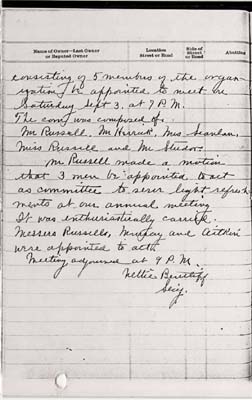 Name of Owner—Last Owner or Reputed Owner
Location Street or Road
Side of Street or Road
Abutting
consisting of 5 members of the organ-
ization, be appointed to meet on
Saturday Sept 3. at 7 P.M.
The com was composed of
Mr Russell, Mr Herrick, Mrs Scanlan,
Miss Russell and Mr
Mr Russell made a motion
that 3 men be appointed to act
as committee to serve light refresh
ments at our annual meeting
It was enthusiastically carried.
Messers Russello, Murray and Aitkin
were appointed to act.
Meeting adjourned at 9 P.M.
Nellie
Secy.